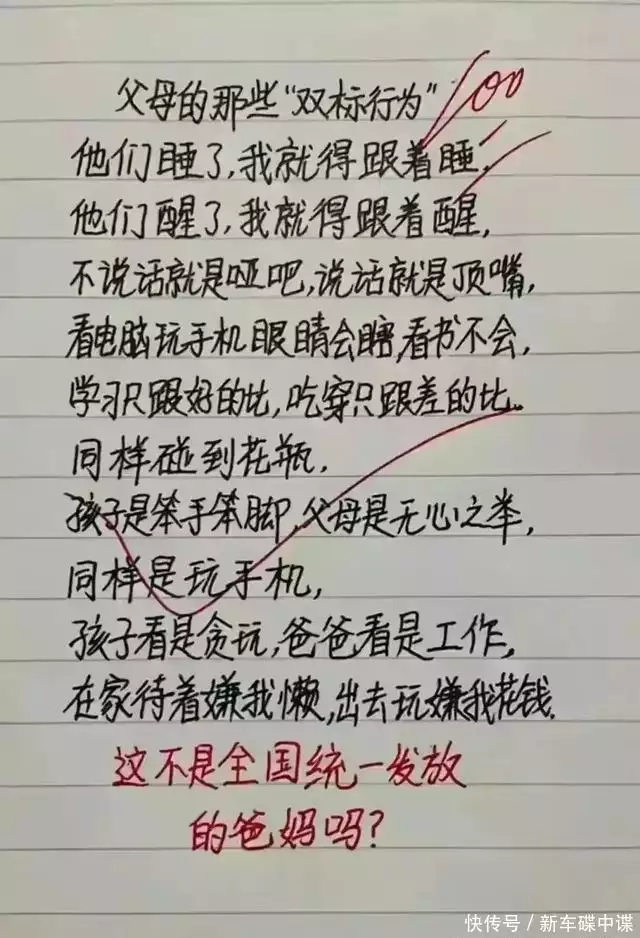 父母的那些“双标行为”
100
他们睡了,我就得跟着睡,
他们醒了,我就得跟着醒,
不说话就是哑吧,说话就是顶嘴,
看电脑玩手机眼睛会瞎,看书不会,
学习只跟好的比,吃穿只跟差的比。
同样碰到花瓶,
孩子是笨手笨脚,父母是无心之举,
同样是玩手机,
孩子看是贪玩,爸爸看是工作,
在家待着嫌我懒,出去玩嫌我花钱.
这不是全国统一发放
的爸妈吗?
快传号/新车碟中谍